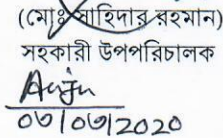 (মোঃ সাহিদার রহমান)
সহকারী উপপরিচালক
০৩/০৩/2020